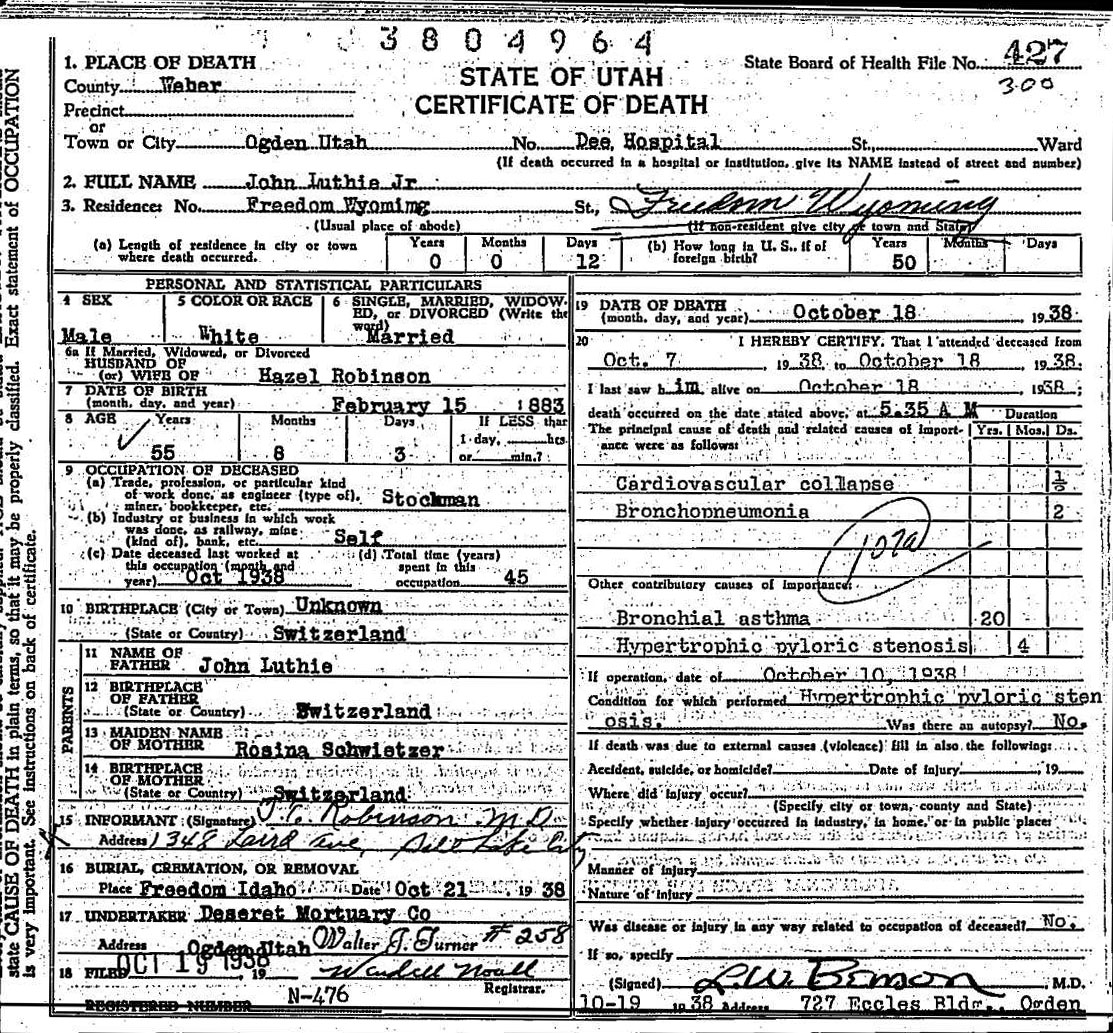 3804964
1. PLACE OF DEATH
State Board of Health File No. 427
County Weber
STATE OF UTAH
300
Precinct
CERTIFICATE OF DEATH
or
Town or City Ogden Utah No. Dee Hospital St., Ward
(If death occurred in a hospital or institution, give its NAME instead of street and number)
2. FULL NAME John Luthie Jr
3. Residence: No. Freedom Wyomimg St., Freedom Wyoming
(Usual place of abode) (If non-resident give city or town and State)
(a) Length of residence in city or town where death occurred. Years 0 Months 0 Days 12 (b) How long in U. S., if of foreign birth? Years 50 Months Days
PERSONAL AND STATISTICAL PARTICULARS
4 SEX Male
5 COLOR OR RACE White
6 SINGLE, MARRIED, WIDOWED, or DIVORCED (Write the word) Married
6a If Married, Widowed, or Divorced
HUSBAND OF
(or) WIFE OF Hazel Robinson
7 DATE OF BIRTH
(month, day, and year) February 15 1883
8 AGE Years Months Days If LESS than
1 day, hrs
55 8 3 or min.?
9 OCCUPATION OF DECEASED
(a) Trade, profession, or particular kind
of work done, as engineer (type of),
miner, bookkeeper, etc. Stockman
(b) Industry or business in which work
was done, as railway, mine
(kind of), bank, etc. Self
(c) Date deceased last worked at
this occupation (month and
year) Oct 1938
(d) Total time (years)
spent in this
occupation 45
10 BIRTHPLACE (City or Town) Unknown
(State or Country) Switzerland
PARENTS
11 NAME OF
FATHER John Luthie
12 BIRTHPLACE
OF FATHER
(State or Country) Switzerland
13 MAIDEN NAME
OF MOTHER Rosina Schwietzer
14 BIRTHPLACE
OF MOTHER
(State or Country) Switzerland
15 INFORMANT (Signature) Robinson M D
Address 1348 Laird Ave, Salt Lake City
16 BURIAL, CREMATION, OR REMOVAL
Place Freedom Idaho Date Oct 21 19 38
17 UNDERTAKER Deseret Mortuary Co
Address Ogden Utah Walter J. Turner # 258
18 FILED OCT 19 1938 19 Wendell Noall
Registrar.
N-476
REGISTERED NUMBER
19 DATE OF DEATH
(month, day, and year) October 18 19 38
20 I HEREBY CERTIFY, That I attended deceased from
Oct. 7, 19 38 to October 18 19 38.
I last saw h im alive on October 18 19 38;
death occurred on the date stated above, at 5.35 A M Duration
The principal cause of death and related causes of importance were as follows: Yrs. Mos. Ds.
Cardiovascular collapse
Bronchopneumonia 2
107a
Other contributory causes of importance:
Bronchial asthma 20
Hypertrophic pyloric stenosis 4
If operation, date of October 10, 1938
Condition for which performed Hypertrophic pyloric sten
osis. Was there an autopsy? No.
If death was due to external causes (violence) fill in also the following:
Accident, suicide, or homicide? Date of injury 19
Where did injury occur?
(Specify city or town, county and State)
Specify whether injury occurred in industry, in home, or in public place:
Manner of injury
Nature of injury
Was disease or injury in any way related to occupation of deceased? No.
If so, specify
(Signed) L.W. Benson M.D.
10-19 19 38 Address 727 Eccles Bldg., Ogden
state CAUSE OF DEATH in plain terms, so that it may be properly classified. Exact statement of OCCUPATION
is very important. See instructions on back of certificate.